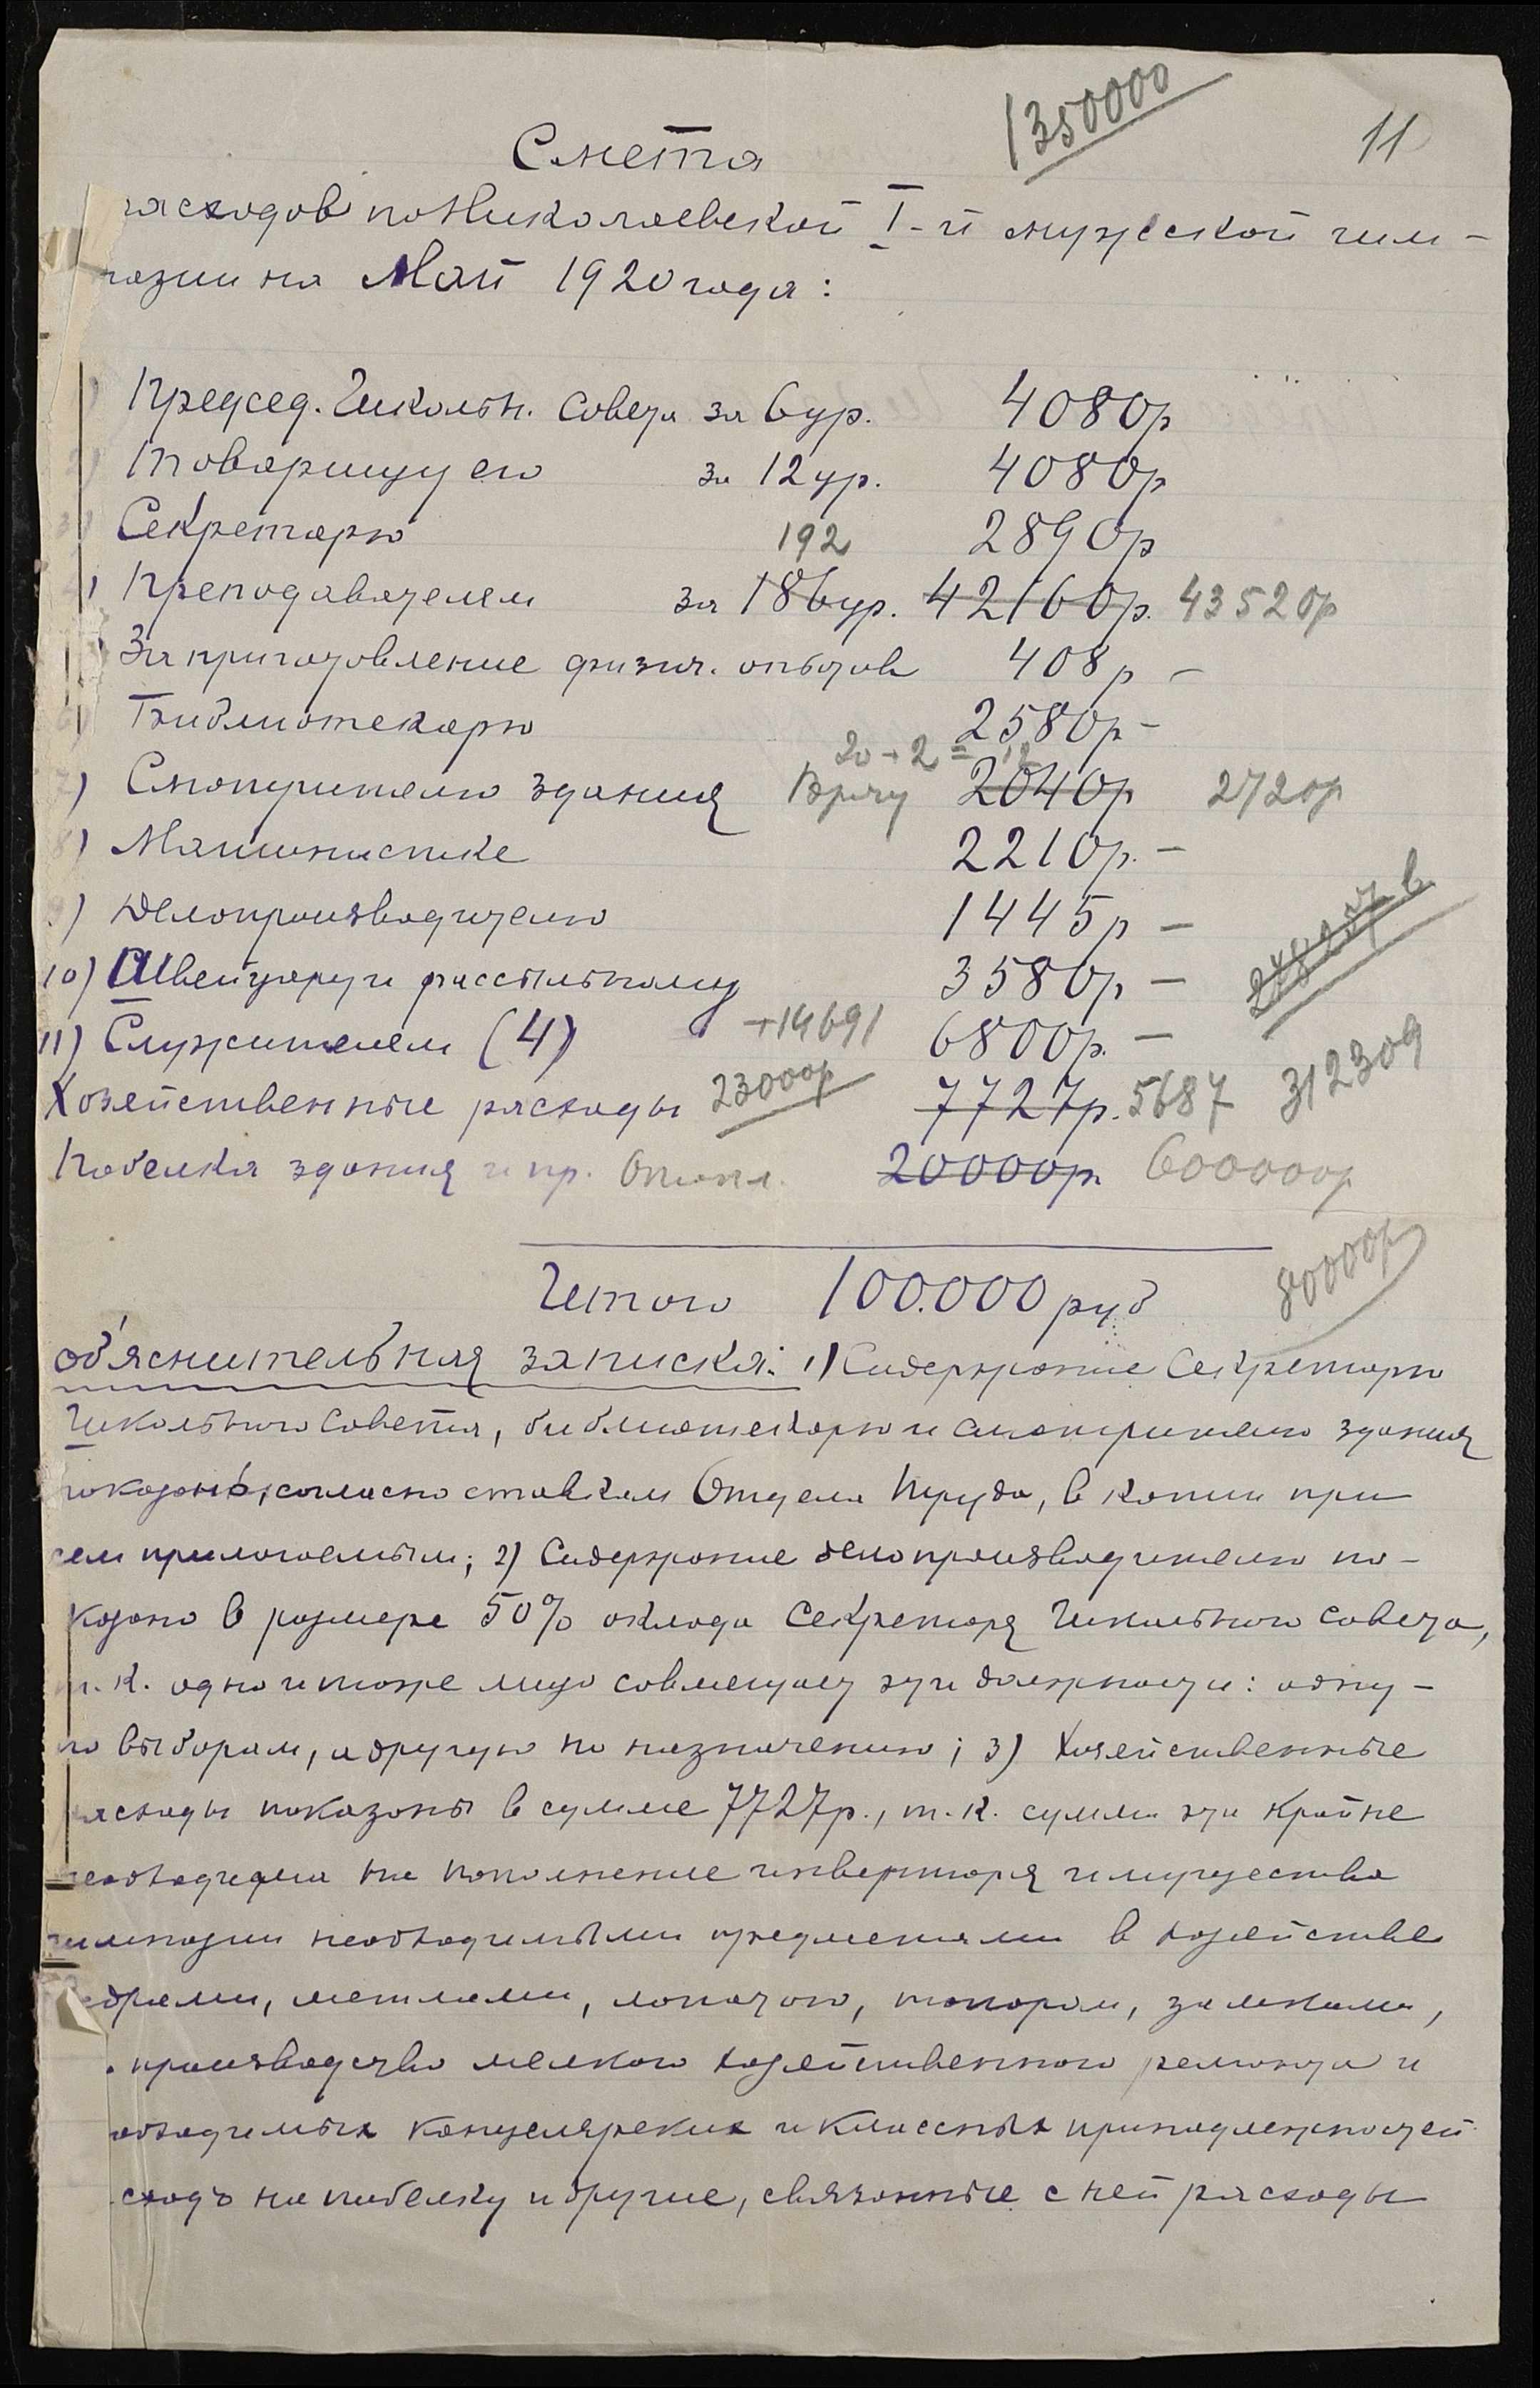 1350000
11
Смета
расходов по Николаевской I-й мужской гим-
назии на Май 1920 года:
Председ. Школьн. Совета за 6 ур. 4080р
Товарищу его за 12 ур. 4080р
Секретарю 2890р
192
Преподавателям за 186 ур. 42160р. 43520р
За приготовление физич. опытов 408р –
Библиотекарю 2580р –
20 + 2 =
7) Смотрителю здания Врачу 2040р 2720р
8) Машинистке 2210р. –
9) Делопроизводителю 1445р –
10) Швейцару и рассыльному 3580р –
11) Служителям (4) +14691 6800р. –
312309
Хозяйственные расходы 23000р 7727р. 5687
Побелка здания и пр. Отопл. 20000р. 600000р
80000р
Итого 100.000 руб
об'яснительная записка: 1) Содержание Секретарю
Школьного Совета, библиотекарю и смотрителю здания
показаны, согласно ставкам Отдела Труда, в копии при
сем прилагаемым; 2) Содержание делопроизводителю по-
казано в размере 50% оклада Секретаря Школьного Совета,
т. к. одно и тоже лицо совмещает эти должности: одну –
по выборам, а другую по назначению; 3) Хозяйственные
расходы показаны в сумме 7727р., т. к. сумма эта крайне
необходима на пополнение инвентаря имущества
гимназии необходимыми предметами в хозяйстве
ведрами, метлами, лопатою, топором, замками,
производство мелкого хозяйственного ремонта и
обходимых канцелярских и классных принадлежностей
сходъ на побелку и другие, связанные с ней расходы